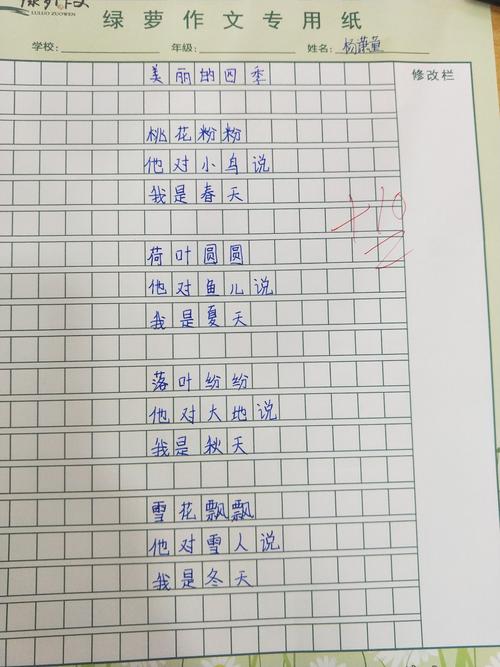 绿萝作文
LULUO ZUOWEN
绿萝作文专用纸
学校: 年级: 姓名:
修改栏
美丽的四季
桃花粉粉
他对小鸟说
我是春天
+10
荷叶圆圆
他对鱼儿说
我是夏天
落叶纷纷
他对大地说
我是秋天
雪花飘飘
他对雪人说
我是冬天